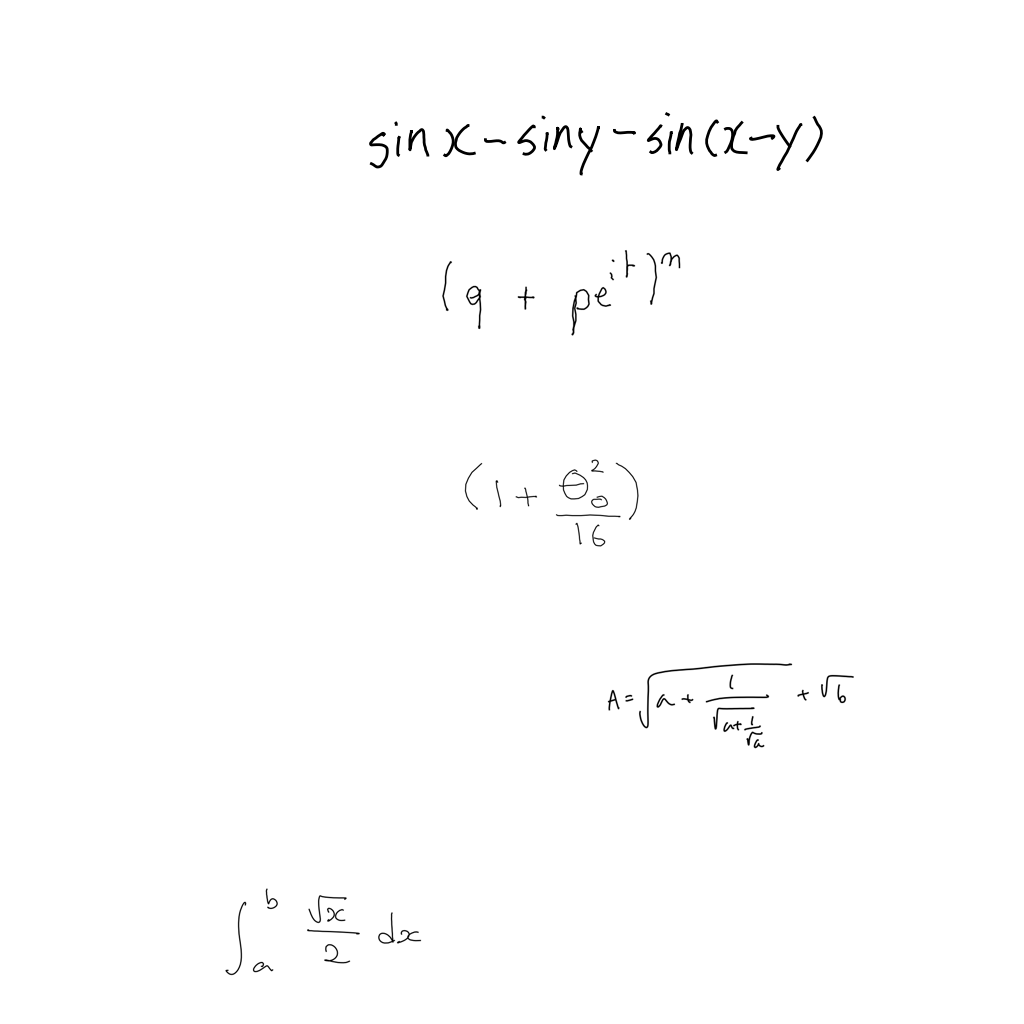 \sin x - \sin y - \sin(x-y)
(q + pe^{it})^n
(1 + \frac{\theta_0^2}{16})
A = \sqrt{a + \frac{1}{\sqrt{a + \frac{1}{\sqrt{a}}}}} + \sqrt{b}
\int_a^b \frac{\sqrt{x}}{2} dx